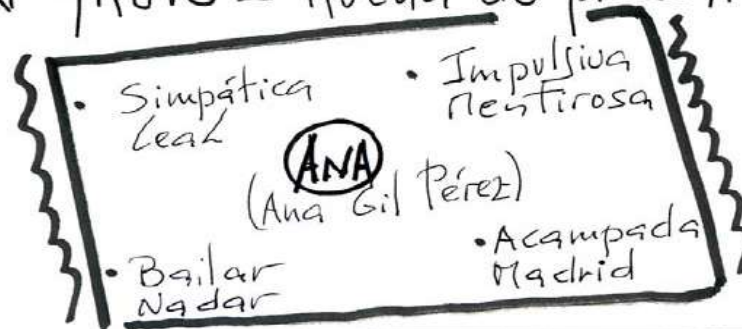 Simpática
Leal
Impulsiva
Mentirosa
ANA
(Ana Gil Pérez)
Bailar
Nadar
Acampada
Madrid